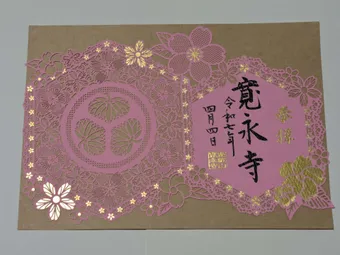 奉拝
寛永寺
令和七年
四月四日